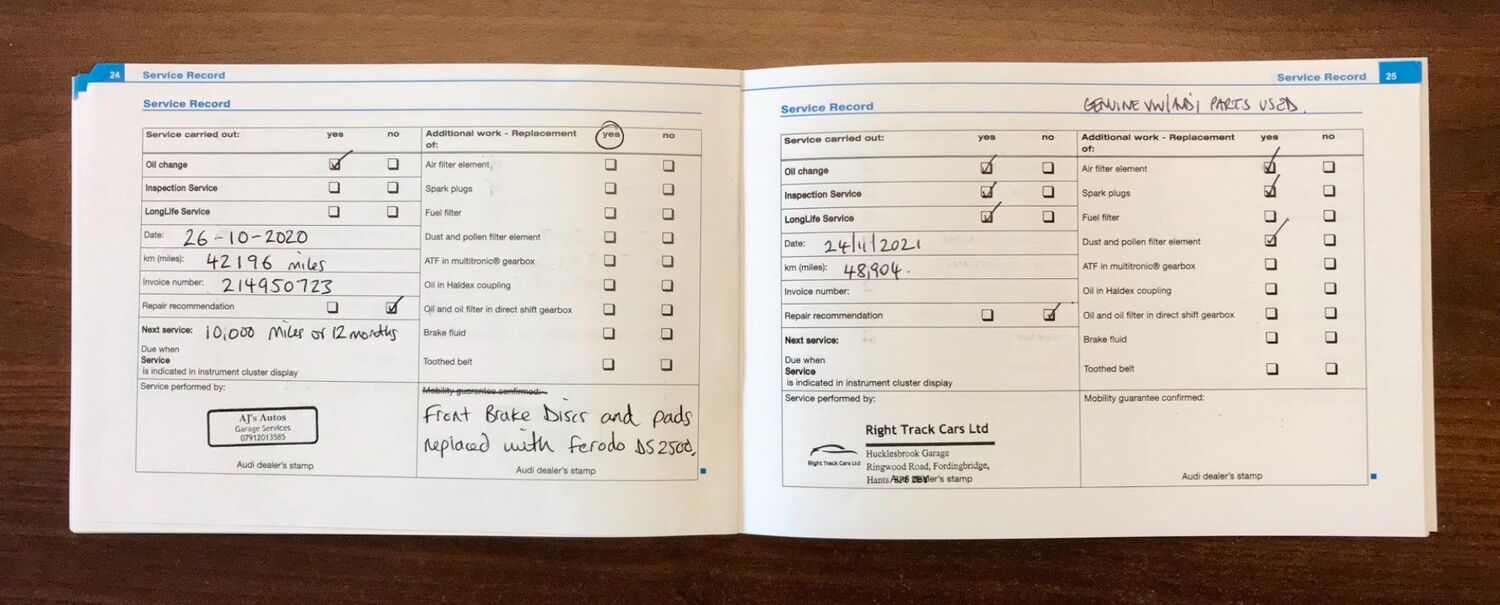 24 Service Record
Service Record
Service carried out: yes no
Oil change
Inspection Service
LongLife Service
Date: 26-10-2020
km (miles): 42196 miles
Invoice number: 214950723
Repair recommendation
Next service: 10,000 Miles or 12 months
Due when
Service
is indicated in instrument cluster display
Service performed by:
AJ's Autos
Garage Services
07912013585
Audi dealer's stamp
Additional work - Replacement yes no
of:
Air filter element
Spark plugs
Fuel filter
Dust and pollen filter element
ATF in multitronic® gearbox
Oil in Haldex coupling
Oil and oil filter in direct shift gearbox
Brake fluid
Toothed belt
Mobility guarantee confirmed:
Front Brake Discs and pads
replaced with Ferodo DS2500.
Audi dealer's stamp
Service Record 25
Service Record
GENUINE VW/AUDI PARTS USED.
Service carried out: yes no
Oil change
Inspection Service
LongLife Service
Date: 24/11/2021
km (miles): 48,904.
Invoice number:
Repair recommendation
Next service:
Due when
Service
is indicated in instrument cluster display
Service performed by:
Right Track Cars Ltd
Right Track Cars Ltd
Hucklesbrook Garage
Ringwood Road, Fordingbridge,
Hants
dealer's stamp
Additional work - Replacement yes no
of:
Air filter element
Spark plugs
Fuel filter
Dust and pollen filter element
ATF in multitronic® gearbox
Oil in Haldex coupling
Oil and oil filter in direct shift gearbox
Brake fluid
Toothed belt
Mobility guarantee confirmed:
Audi dealer's stamp